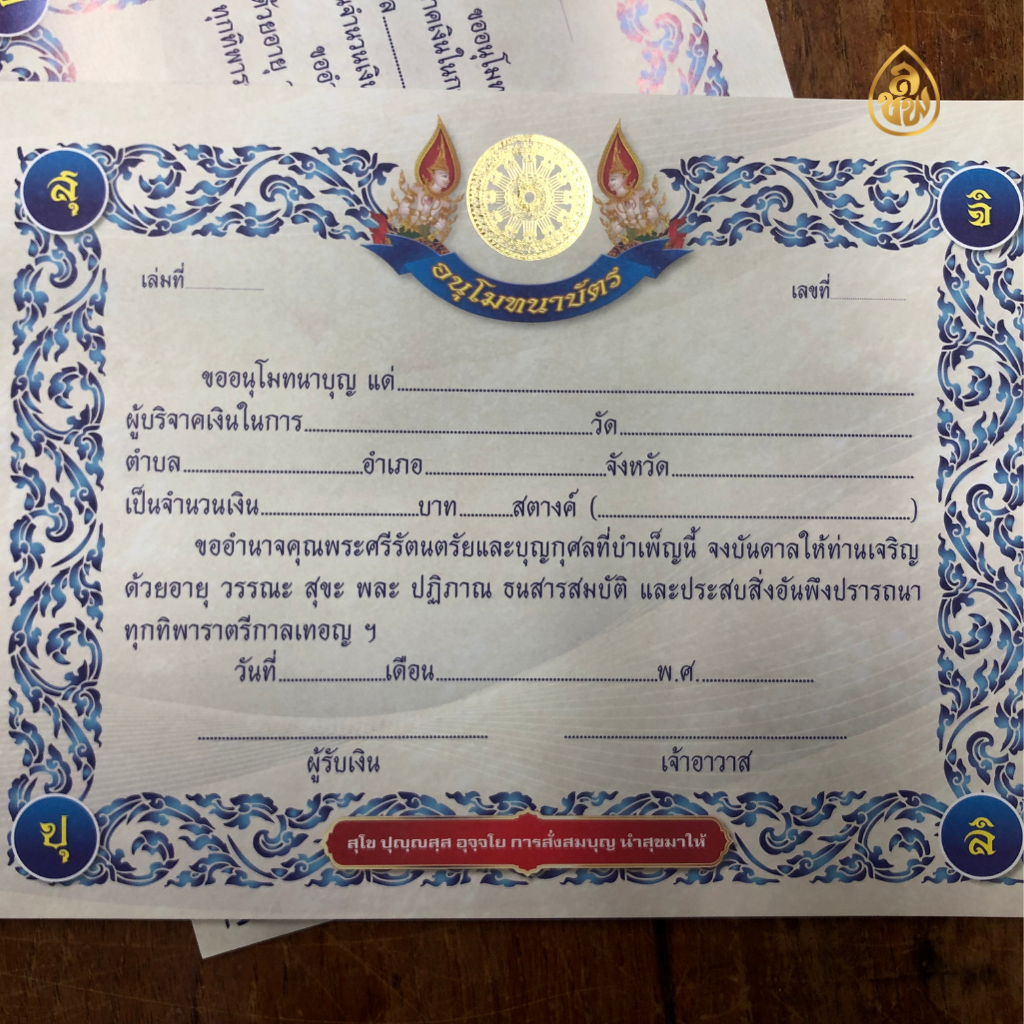 ขออนุโมท
าคเงินในก
ล
จำนวนเงิน
ด้วยอายุ
ทุกทิพาร
สุ
จิ
อนุโมทนาบัตร
เล่มที่..............
เลขที่..............
ขออนุโมทนาบุญ แด่..............................
ผู้บริจาคเงินในการ....................วัด....................
ตำบล....................อำเภอ....................จังหวัด....................
เป็นจำนวนเงิน....................บาท..........สตางค์ (..............................)
ขออำนาจคุณพระศรีรัตนตรัยและบุญกุศลที่บำเพ็ญนี้ จงบันดาลให้ท่านเจริญ
ด้วยอายุ วรรณะ สุขะ พละ ปฏิภาณ ธนสารสมบัติ และประสบสิ่งอันพึงปรารถนา
ทุกทิพาราตรีกาลเทอญ ฯ
วันที่..............เดือน....................พ.ศ...............
ผู้รับเงิน
เจ้าอาวาส
ปุ
ลิ
สุโข ปุญฺญสฺส อุจฺจโย การสั่งสมบุญ นำสุขมาให้